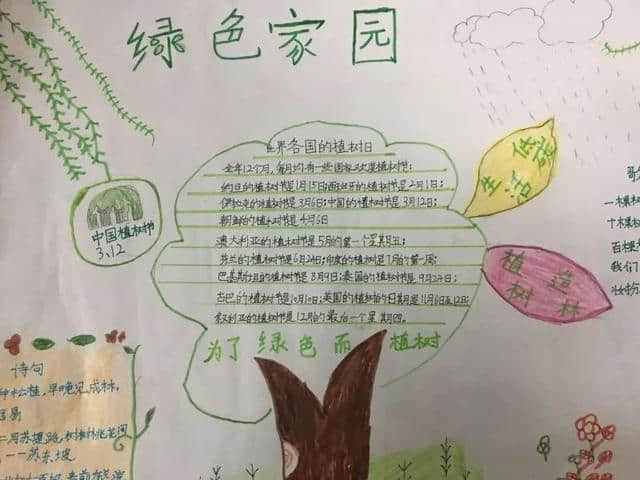 绿色家园
世界各国的植树日
全年12个月,每月均有一些国家欢度植树节:
约旦的植树节是1月15日;西班牙的植树节是2月1日;
伊拉克的植树节是3月6日;中国的植树节是3月12日;
朝鲜的植树节是4月6日
澳大利亚的植树节是5月的第一个星期五;
芬兰的植树节是6月24日;印度的植树节是7月的第一周;
巴基斯坦的植树节是8月9日;泰国的植树节是9月24日;
古巴的植树节是10月10日;英国的植树节的日期是11月6日至12日;
叙利亚的植树节是12月的最后一个星期四。
为了绿色而植树
中国植树节
3.12
低碳
生活
植树
造林
诗句
种松桂,早晚见成林,
苏东坡
一棵树
十棵树
百棵
我们
妆扮